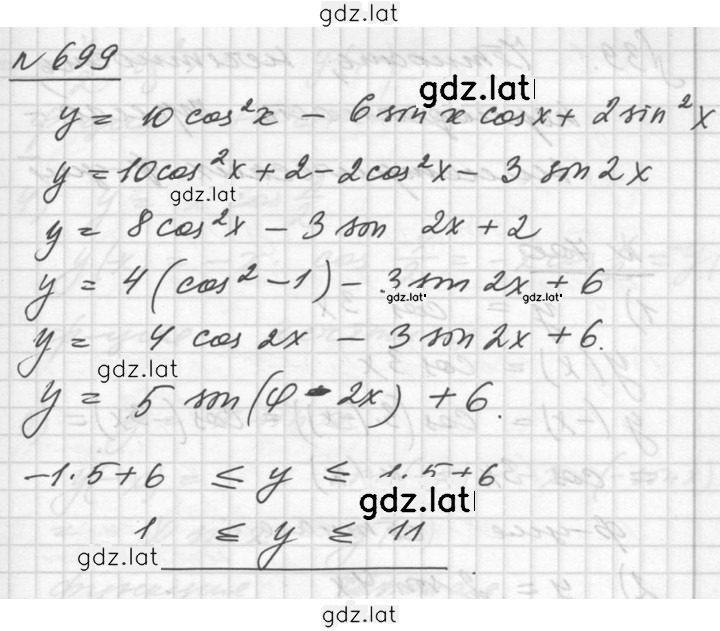 gdz.lat
N 699
gdz.lat
y = 10 cos²x - 6 sin x cos x + 2 sin²x
y = 10cos²x + 2 - 2cos²x - 3 sin 2x
gdz.lat
y = 8 cos²x - 3 sin 2x + 2
y = 4 (cos² - 1) - 3 sin 2x + 6
gdz.lat gdz.lat
y = 4 cos 2x - 3 sin 2x + 6.
gdz.lat
y = 5 sin (φ - 2x) + 6.
-1·5+6 ≤ y ≤ 1·5+6
gdz.lat
1 ≤ y ≤ 11
gdz.lat
gdz.lat